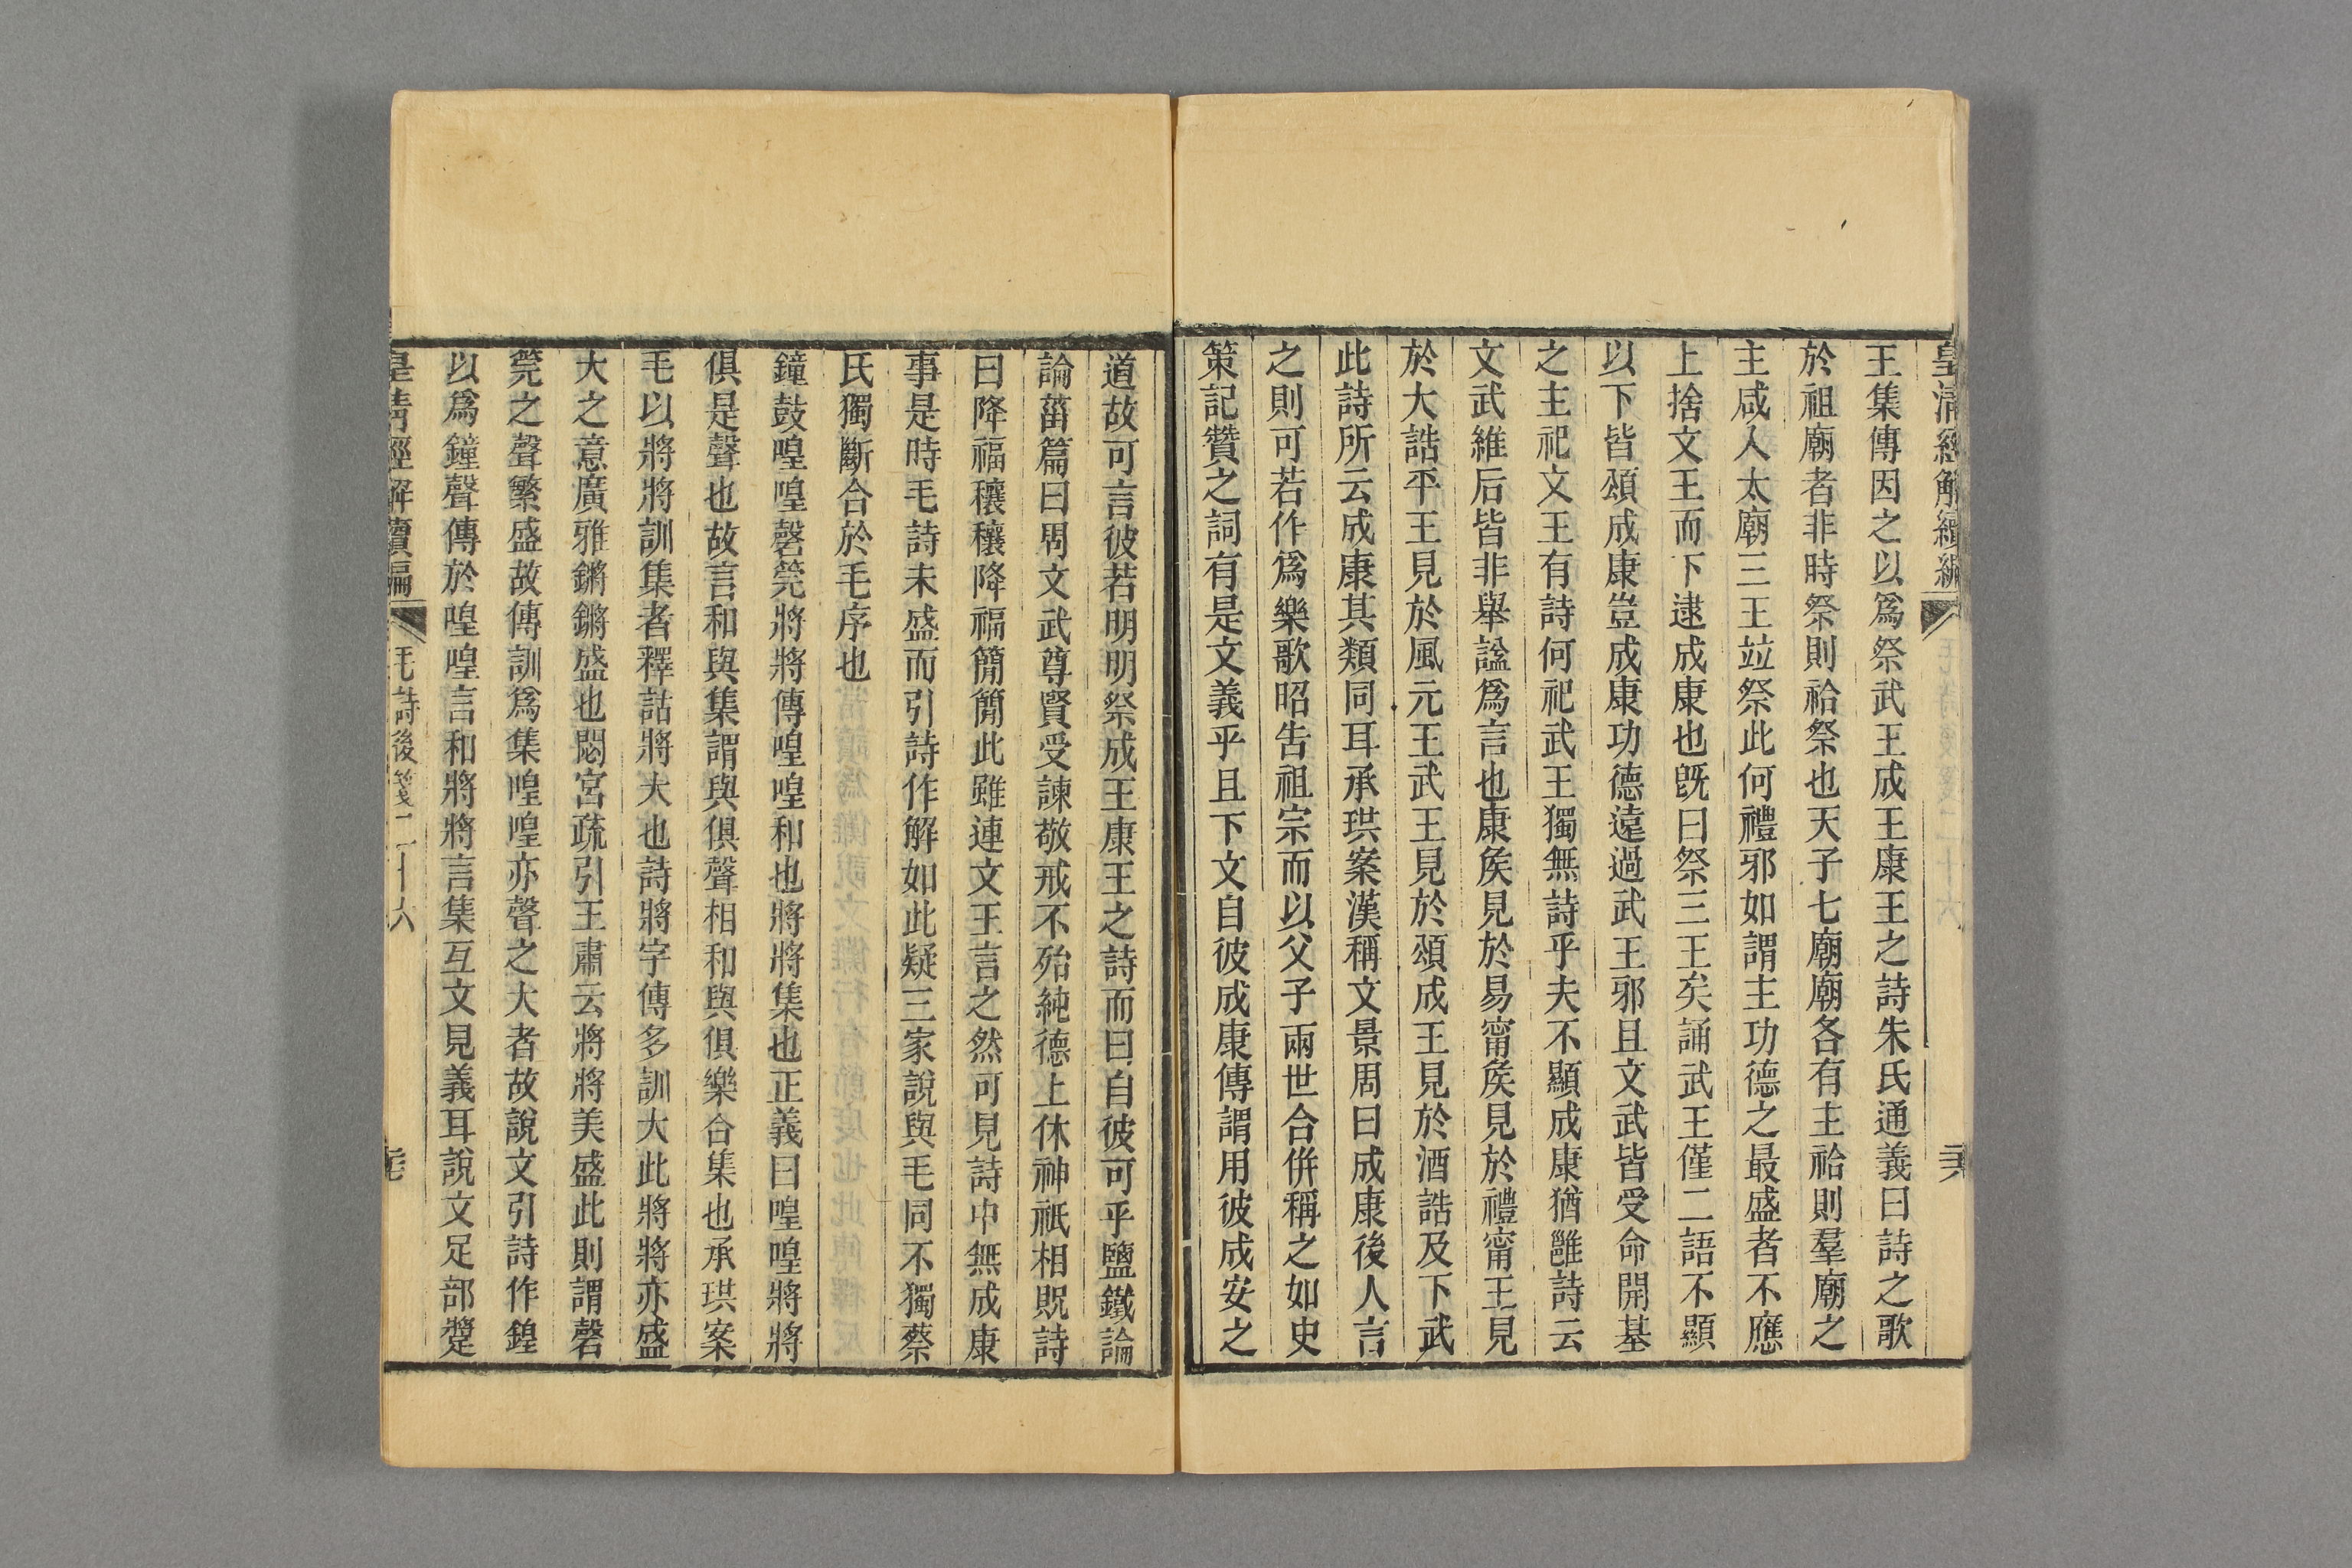 皇清經解續編
王集傳因之以爲祭武王成王康王之詩朱氏通義曰詩之歌
於祖廟者非時祭則祫祭也天子七廟廟各有主祫則羣廟之
主咸入太廟三王竝祭此何禮邪如謂主功德之最盛者不應
上捨文王而下逮成康也旣曰祭三王矣誦武王僅二語不顯
以下皆頌成康豈成康功德遠過武王邪且文武皆受命開基
之主祀文王有詩何祀武王獨無詩乎夫不顯成康猶雝詩云
文武維后皆非舉諡爲言也康矦見於易甯矦見於禮甯王見
於大誥平王見於風元王武王見於頌成王見於酒誥及下武
此詩所云成康其類同耳承珙案漢稱文景周曰成康後人言
之則可若作爲樂歌昭告祖宗而以父子兩世合倂稱之如史
策記贊之詞有是文義乎且下文自彼成康傳謂用彼成安之
道故可言彼若明明祭成王康王之詩而曰自彼可乎鹽鐵論
論菑篇曰周文武尊賢受諫敬戒不殆純德上休神祇相貺詩
曰降福穰穰降福簡簡此雖連文王言之然可見詩中無成康
事是時毛詩未盛而引詩作解如此疑三家說與毛同不獨蔡
氏獨斷合於毛序也
鐘鼓喤喤磬筦將將傳喤喤和也將將集也正義曰喤喤將將
俱是聲也故言和與集謂與俱聲相和與俱樂合集也承珙案
毛以將將訓集者釋詁將大也詩將字傳多訓大此將將亦盛
大之意廣雅鏘鏘盛也閟宮疏引王肅云將將美盛此則謂磬
筦之聲繁盛故傳訓爲集喤喤亦聲之大者故說文引詩作鍠
以爲鐘聲傳於喤喤言和將將言集互文見義耳說文足部躄
皇淸經解續編 毛詩後箋二十六